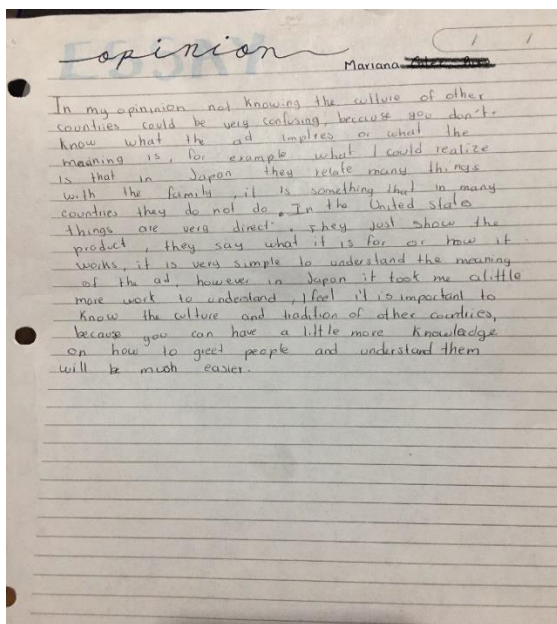 opinion
Mariana
In my opininion not knowing the culture of other
countries could be very confusing, because you don't
know what the ad implies or what the
meaning is, for example what I could realize
is that in Japan they relate many things
with the family, it is something that in many
countries they do not do. In the United states
things are very direct. They just show the
product, they say what it is for or how it
works, it is very simple to understand the meaning
of the ad, however in Japan it took me a little
more work to understand, I feel it is important to
know the culture and tradition of other countries,
because you can have a little more knowledge
on how to greet people and understand them
will be much easier.